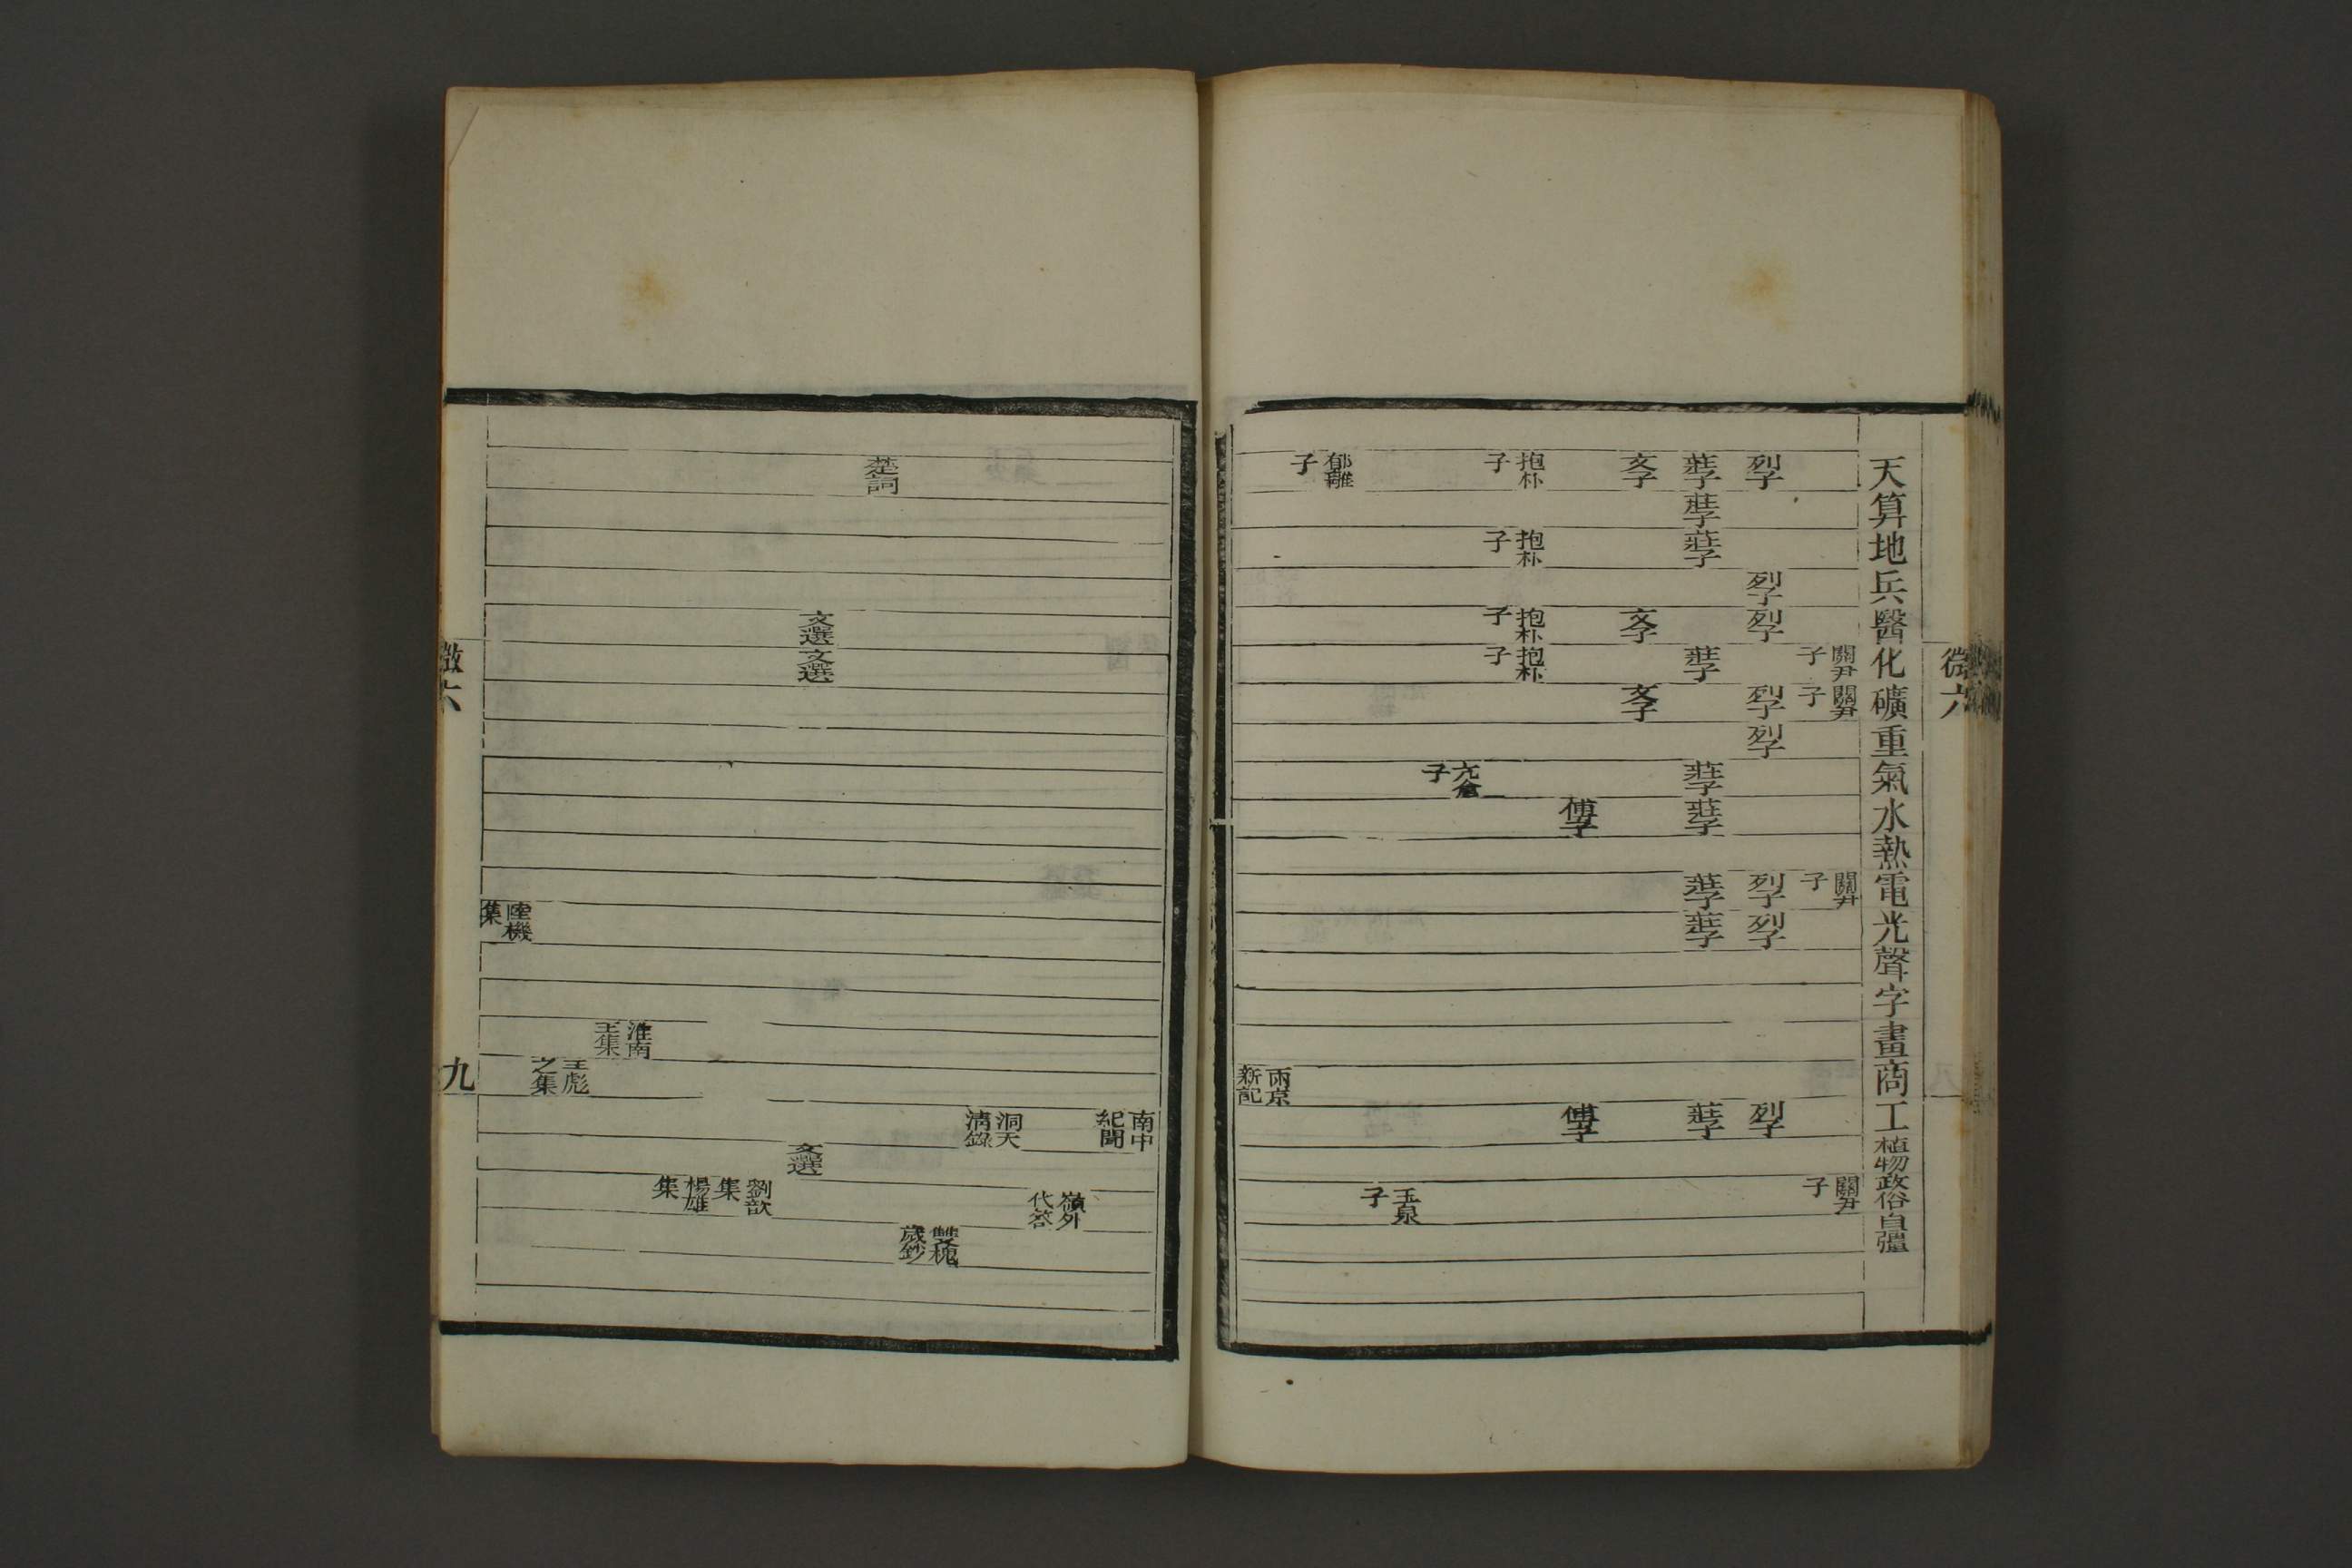 微六
天算地兵醫化礦重氣水熱電光聲字畫商工植物政俗自彊
關尹子 關尹子 關尹子 關尹子
列子 列子 列子 列子 列子 列子 列子 列子
莊子 莊子 莊子 莊子 莊子 莊子 莊子 莊子 莊子
文子 文子 文子
傅子 傅子
抱朴子 抱朴子 抱朴子 抱朴子
亢倉子
玉泉子
郁離子
兩京新記
南中紀聞
嶺外代答
洞天清錄
雙槐歲鈔
楚詞
文選 文選 文選
劉歆集
楊雄集
淮南王集
王彪之集
陸機集
微六
九